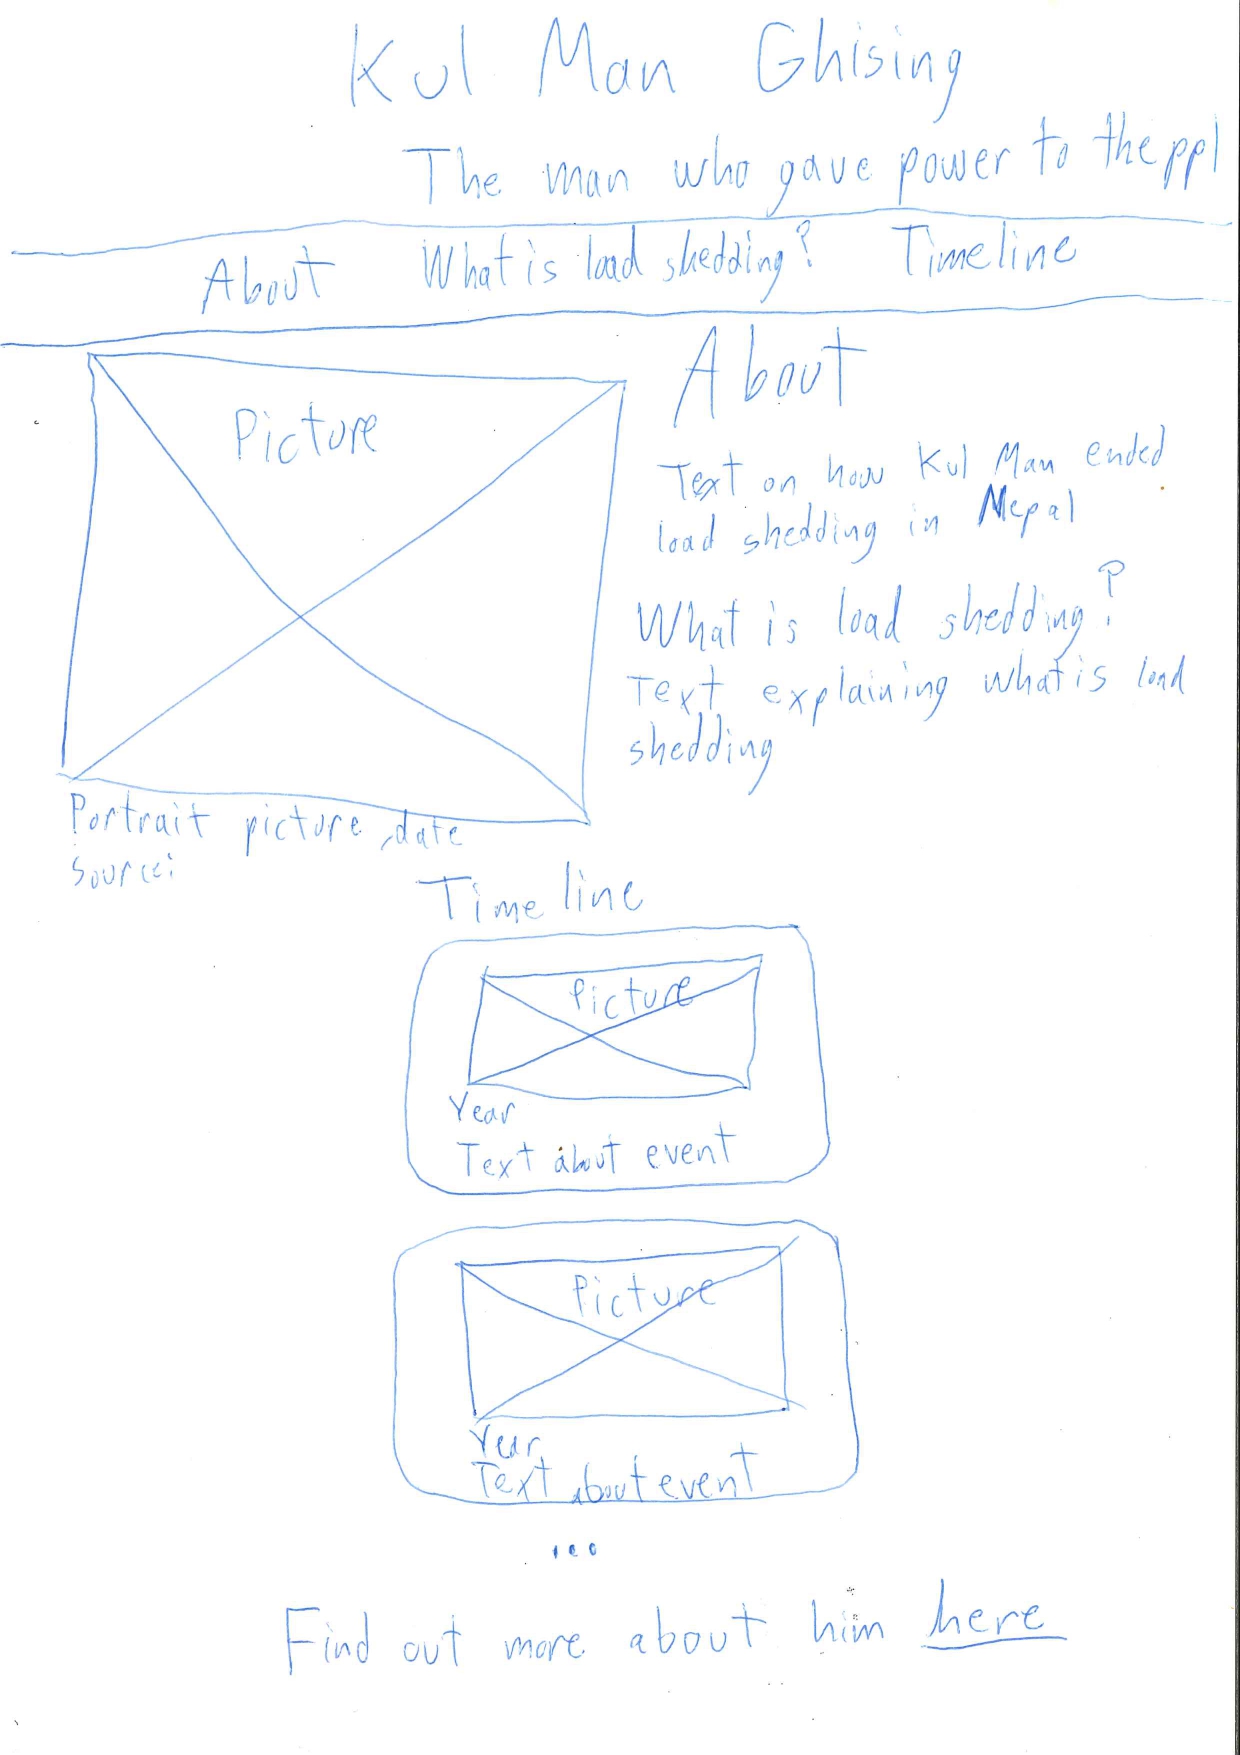 Kul Man Ghising
The man who gave power to the ppl
About What is load shedding? Timeline
Picture
About
Text on how Kul Man ended
load shedding in Nepal
What is load shedding?
Text explaining what is load
shedding
Portrait picture, date
Source:
Timeline
Picture
Year
Text about event
Picture
Year
Text about event
...
Find out more about him here